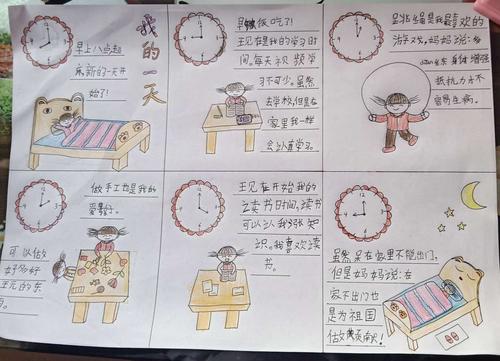 我的一天
早上八点起
床新的一天开
始了!
早饭吃了!
王见在是我的学习时
间,每天视频学
习不可少。虽然
去学校,但是在
家里我一样
会认真学习。
跳绳是我最喜欢的
游戏,妈妈说:多
身体增强
抵抗力才不
容易生病。
做手工也是我的
爱好。
可以做
好多好
王元的东
西。
王见在开始我的
读书时间,读书
可以让我增长知
识。我喜欢读
书。
虽然呆在家里不能出门,
但是妈妈说:在
家不出门也
是为祖国
做贡献!